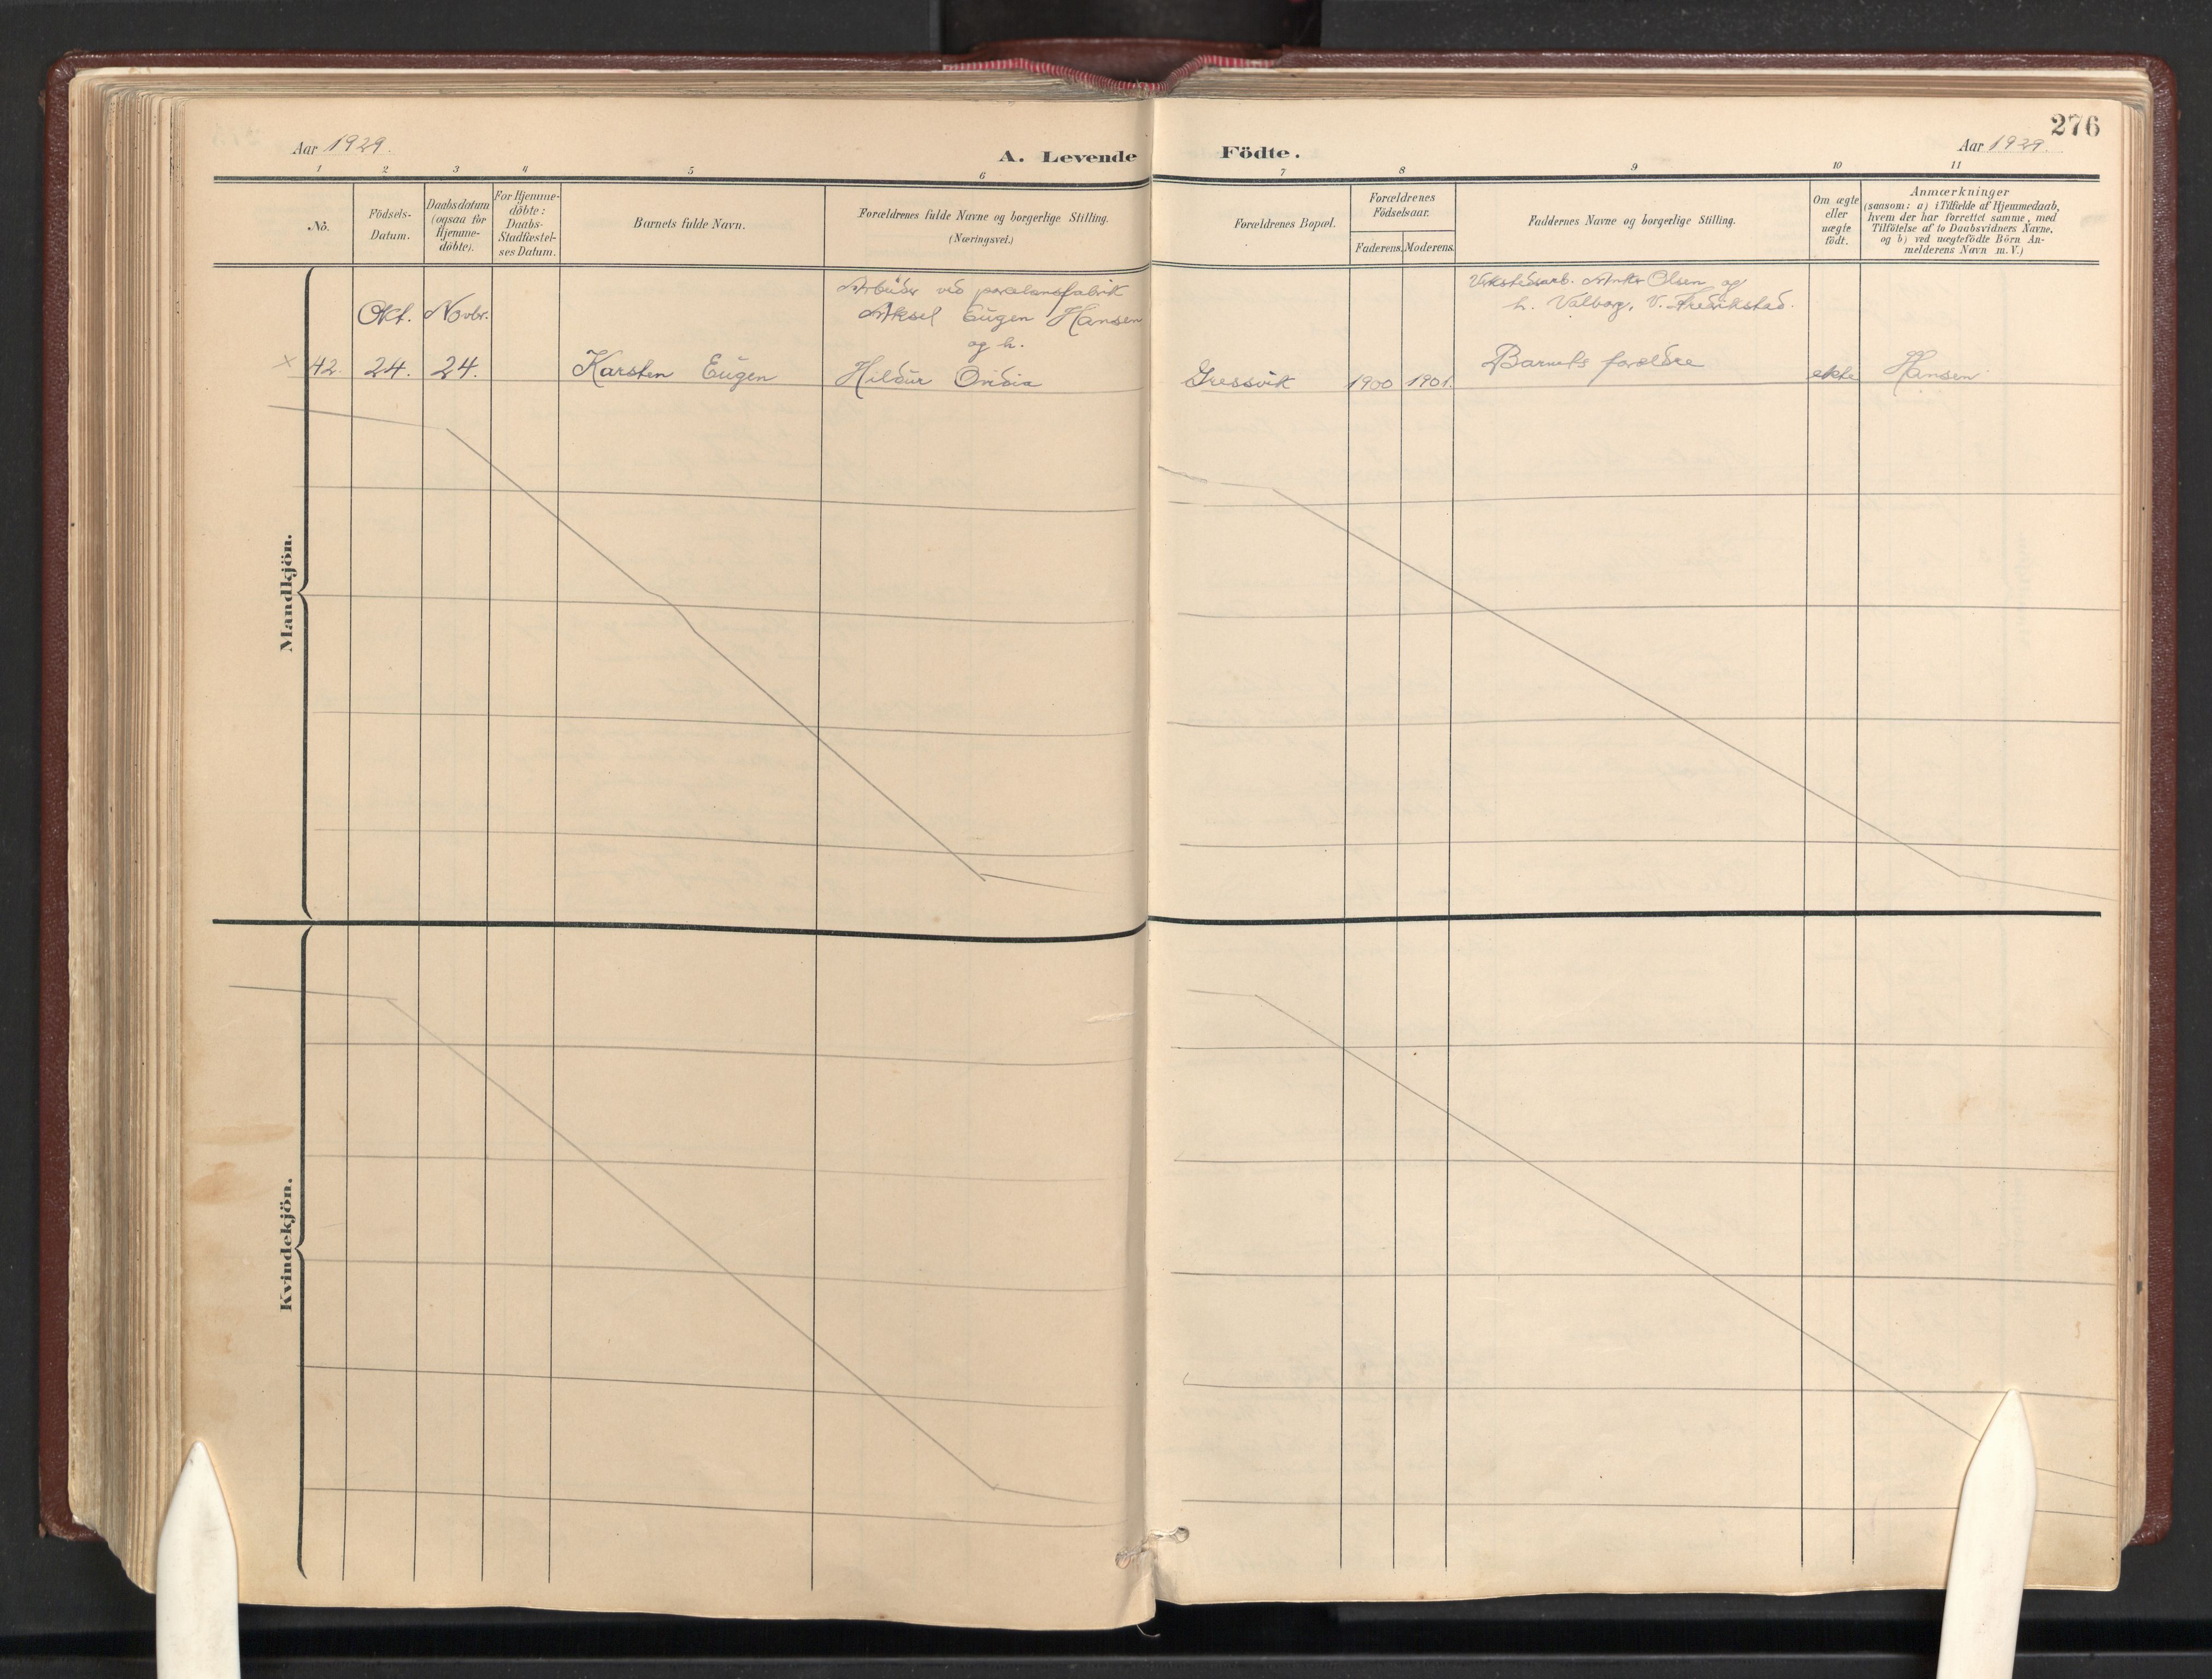 276
Aar 1929.
A. Levende Födte.
Aar 1929.
1 2 3 4 5 6 7 8 9 10 11
No.
Födsels-
Datum.
Daabsdatum
(ogsaa for
Hjemme-
döbte).
For Hjemme-
döbte:
Daabs-
Stadfæstel-
ses Datum.
Barnets fulde Navn.
Forældrenes fulde Navne og borgerlige Stilling.
(Næringsvei.)
Forældrenes Bopæl.
Forældrenes
Födselsaar.
Faderens. Moderens.
Faddernes Navne og borgerlige Stilling.
Om ægte
eller
uægte
födt.
Anmærkninger
(saasom: a) i Tilfælde af Hjemmedaab,
hvem der har forrettet samme, med
Tilföielse af to Daabsvidners Navne,
og b) ved uægtefödte Börn An-
melderens Navn m. V.)
Mandkjön.
× 42.
Okt.
24.
Novbr.
24.
Karsten Eugen
Arbeider ved porcelænsfabrik
Aksel Eugen Hansen
og h.
Hildur Ovidia
Gressvik
1900 1901.
Verkstedsarb. Anker Olsen og
h. Valborg, V. Fredrikstad.
Barnets forældre
ekte
Hansen
Kvindekjön.